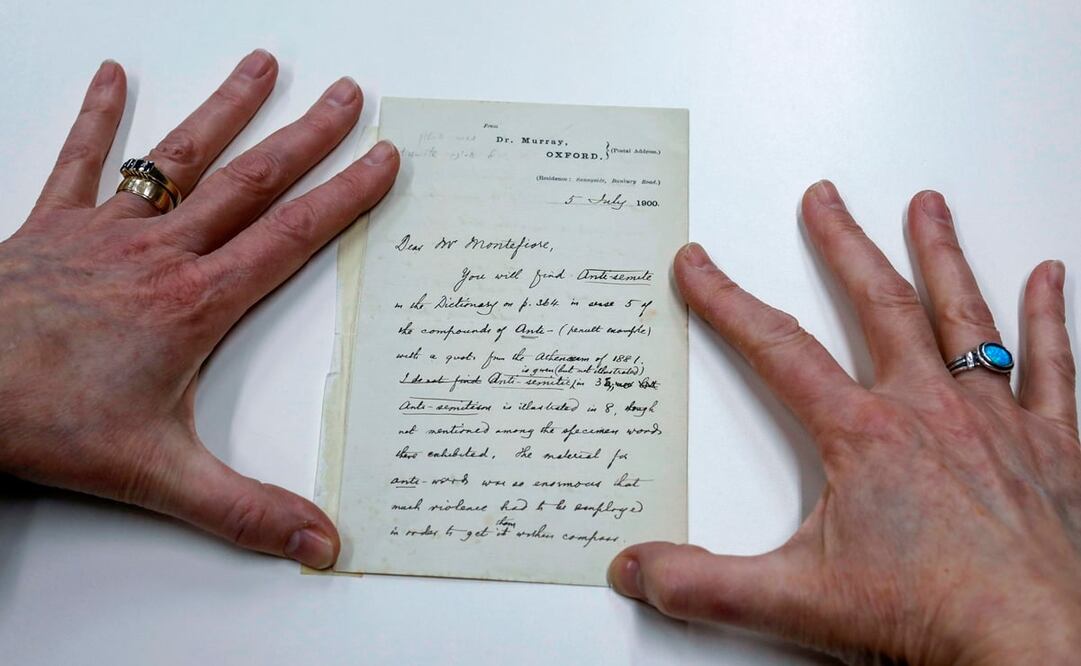 From
Dr. Murray,
OXFORD. } (Postal Address.)
(Residence: Sunnyside, Banbury Road.)
5 July 1900.
Dear Mr Montefiore,
You will find Anti-semite
in the Dictionary on p. 364 in sense 5 of
the compounds of Anti- (penult example)
with a quotn from the Athenæum of 1881.
is given (but not illustrated)
I do not find Anti-semitic, in 3
Anti-semitism is illustrated in 8, though
not mentioned among the specimen words
there exhibited. The material for
anti- words was so enormous that
much violence had to be employed
them
in order to get it within compass.